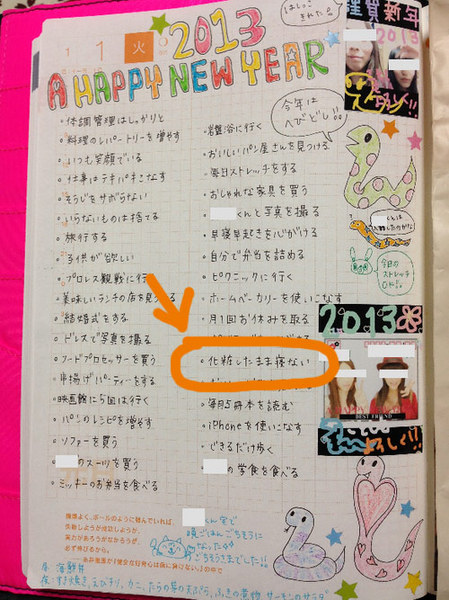 1 1 火
2013
A HAPPY NEW YEAR
謹賀新年
2013
今年は
へびどし!!
・体調管理はしっかりと
・料理のレパートリーを増やす
・いつも笑顔でいる
・仕事はテキパキこなす
・そうじをサボらない
・いらないものは捨てる
・旅行する
・子供が欲しい
・プロレス観戦に行
・美味しいランチの店を見 る
・結婚式をする
・ドレスで写真を撮る
・フードプロセッサーを買う
・串揚げパーティーをする
・映画館に5回は行く
・パンのレシピを増やす
・ソファーを買う
・ のスーツを買う
・ミッキーのお弁当を食べる
・岩盤浴に行く
・おいしいパン屋さんを見つける
・毎日ストレッチをする
・おしゃれな家具を買う
・ くんと写真を撮る
・早寝早起きを心がける
・自分で弁当を詰める
・ピクニックに行く
・ホームベーカリーを使いこなす
・月1回お休みを取る
・化粧したまま寝ない
・毎月5冊本を読む
・iPhoneを使いこなす
・できるだけ歩く
・ の学食を食べる
今日の
ストレッチ
2013
BEST FRIEND
くん家で
晩ごはんごちそうに
なった
ごちそうさまでした!!
海鮮丼
すき焼き、えびチリ、カニ、たらの芽の天ぷら、ふきの煮物、サーモンのサラダ